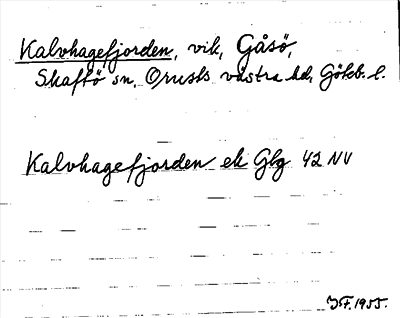 Kalvhagefjorden, vik, Gåsö,
Skaftö sn, Orusts västra hd, Göteb. l.
Kalvhagefjorden ek Glg 42 NV
IF. 1955.